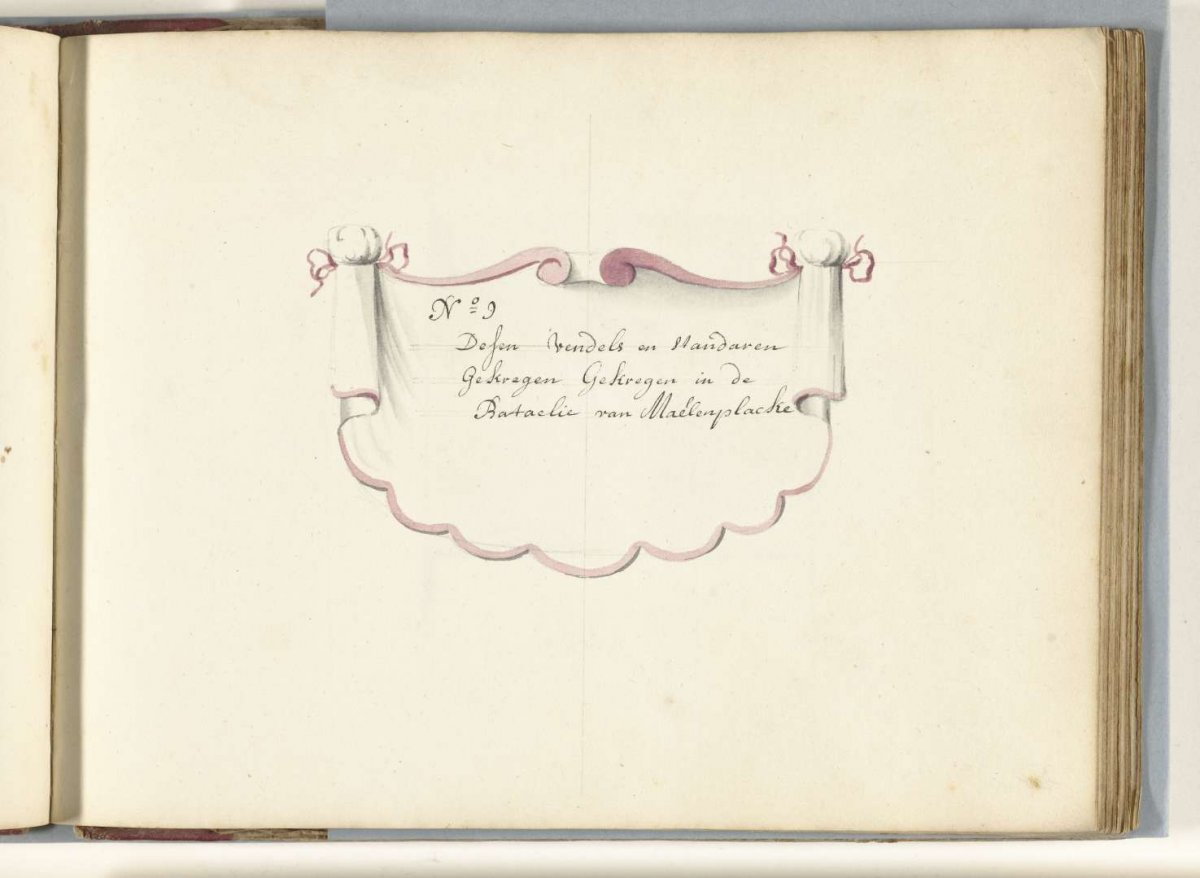 No 9
Desen Vendels en Standaren
Gekregen Gekregen in de
Bataelie van Maelenplacke